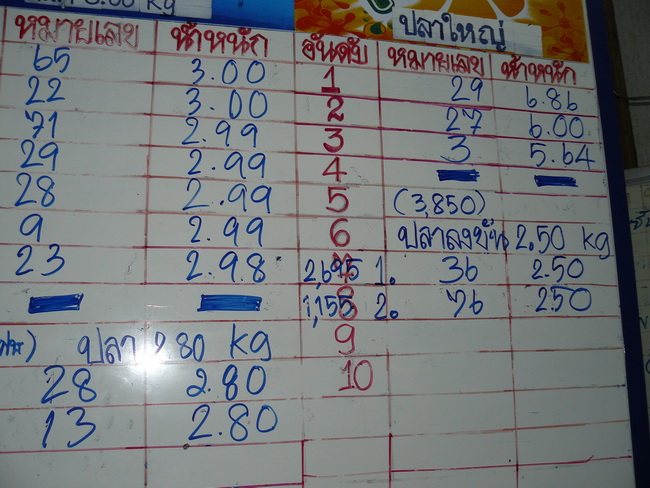 3.00 kg
ปลาใหญ่
หมายเลข น้ำหนัก อันดับ หมายเลข น้ำหนัก
65 3.00 1 29 6.86
22 3.00 2 27 6.00
71 2.99 3 3 5.64
29 2.99 4
28 2.99 5 (3,850)
9 2.99 6 ปลาลงขัน 2.50 kg
23 2.98 2,695 1. 36 2.50
1,155 8 2. 76 250
ปลา 2.80 kg 9
28 2.80 10
13 2.80